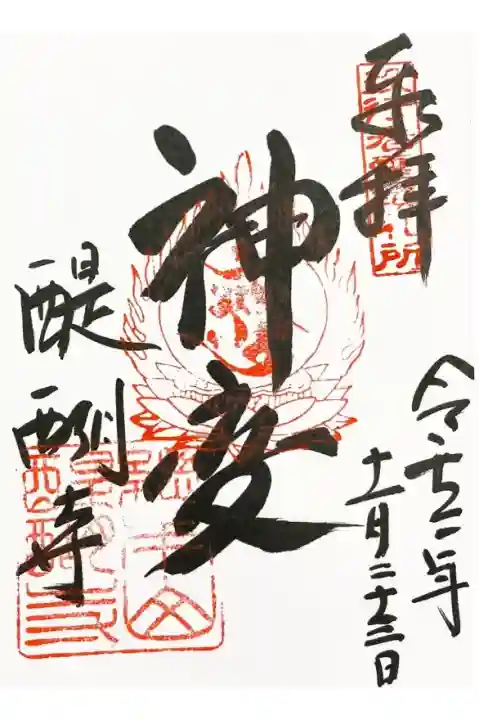 奉拝
令和二年
十一月二十三日
神変
醍醐寺